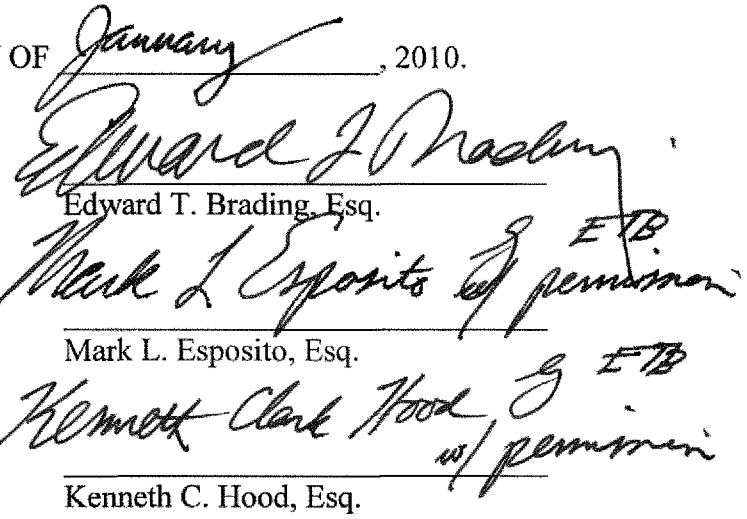 OF January, 2010.
Edward T Brading
Edward T. Brading, Esq.
by ETB
Mark L Esposito w/ permission
Mark L. Esposito, Esq.
Kenneth Clark Hood by ETB
w/ permission
Kenneth C. Hood, Esq.